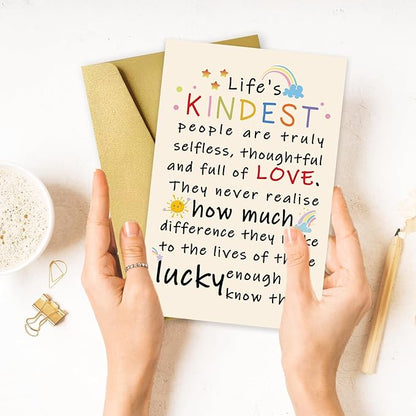 Life's
KINDEST
people are truly
selfless, thoughtful
and full of LOVE.
They never realise
how much
difference they
to the lives of
lucky enough
know